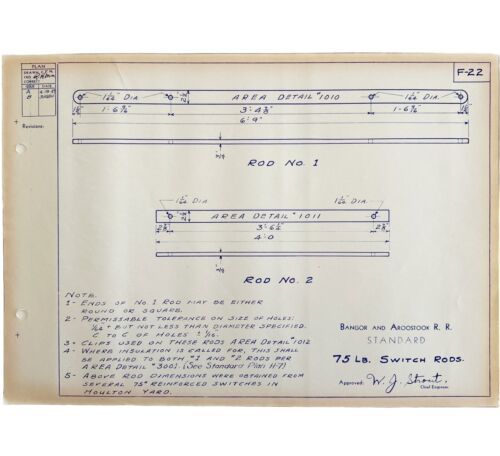 PLAN
F-22
Revisions:
AREA DETAIL #1010
1-6¾" 3'-4½" 1-6¾"
6'-9"
ROD NO. 1
DIA. DIA.
AREA DETAIL #1011
3'-6½"
4'-0
ROD NO. 2
NOTE.
1- ENDS OF NO. 1 ROD MAY BE EITHER
ROUND OR SQUARE.
2- PERMISSABLE TOLERANCE ON SIZE OF HOLES:
1/64 + BUT NOT LESS THAN DIAMETER SPECIFIED.
C TO C OF HOLES ± 1/16.
3- CLIPS USED ON THESE RODS AREA DETAIL #1012
4- WHERE INSULATION IS CALLED FOR, THIS SHALL
BE APPLIED TO BOTH #1 AND #2 RODS PER
AREA DETAIL #3001. (See Standard Plan H-7)
5- ABOVE ROD DIMENSIONS WERE OBTAINED FROM
SEVERAL 75# REINFORCED SWITCHES IN
HOULTON YARD.
BANGOR AND AROOSTOOK R. R.
STANDARD
75 LB. SWITCH RODS.
Approved: W. J. Strout.
Chief Engineer.